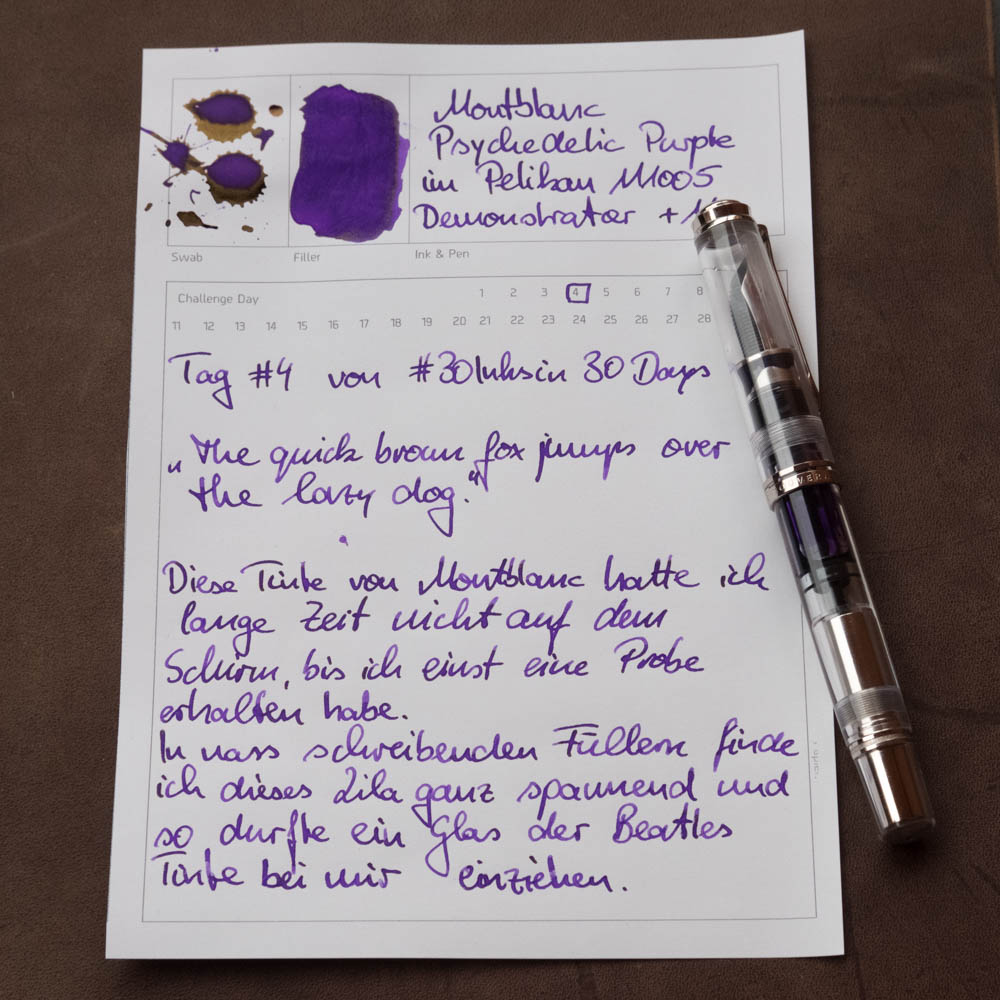 Montblanc
Psychedelic Purple
im Pelikan M1005
Demonstrator +
Swab
Filler
Ink & Pen
Challenge Day 1 2 3 4 5 6 7 8
11 12 13 14 15 16 17 18 19 20 21 22 23 24 25 26 27 28
Tag #4 von #30Inksin 30 Days
„the quick brown fox jumps over
the lazy dog."
Diese Tinte von Montblanc hatte ich
lange Zeit nicht auf dem
Schirm, bis ich einst eine Probe
erhalten habe.
In nass schreibenden Füllern finde
ich dieses Lila ganz spannend und
so durfte ein Glas der Beatles
Tinte bei mir einziehen.